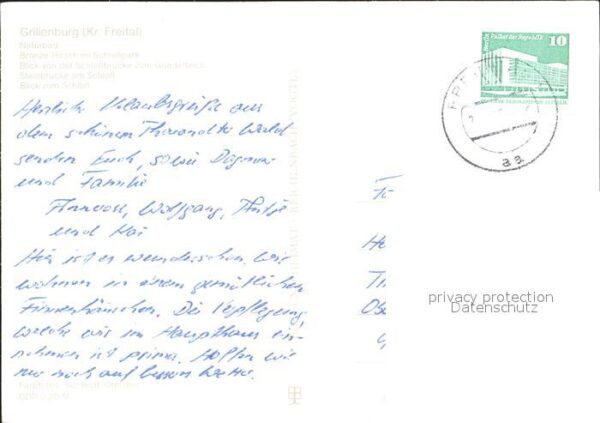 Grillenburg (Kr. Freital)
Naturbad
Bronze-Hirsch im Schloßpark
Blick von der Schloßbrücke zum
Steinbrücke am Schloß
Blick zum Schloß
Herzliche Urlaubsgrüße aus
dem schönen Tharandter Wald
senden Euch, sowie Dagmar
und Familie
Hannore, Wolfgang, Antje
und Kai
Hier ist es wunderschön. Wir
wohnen in einem gemütlichen
Finnenhäuschen. Die Verpflegung,
welche wir im Haupthaus ein-
nehmen ist prima. Hoffen wir
nur noch auf besseres Wetter.
10
Berlin Palast der Republik
DDR
aa
privacy protection
Datenschutz